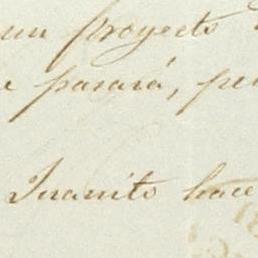 un proyecto
pasará, pe
Juanito hace